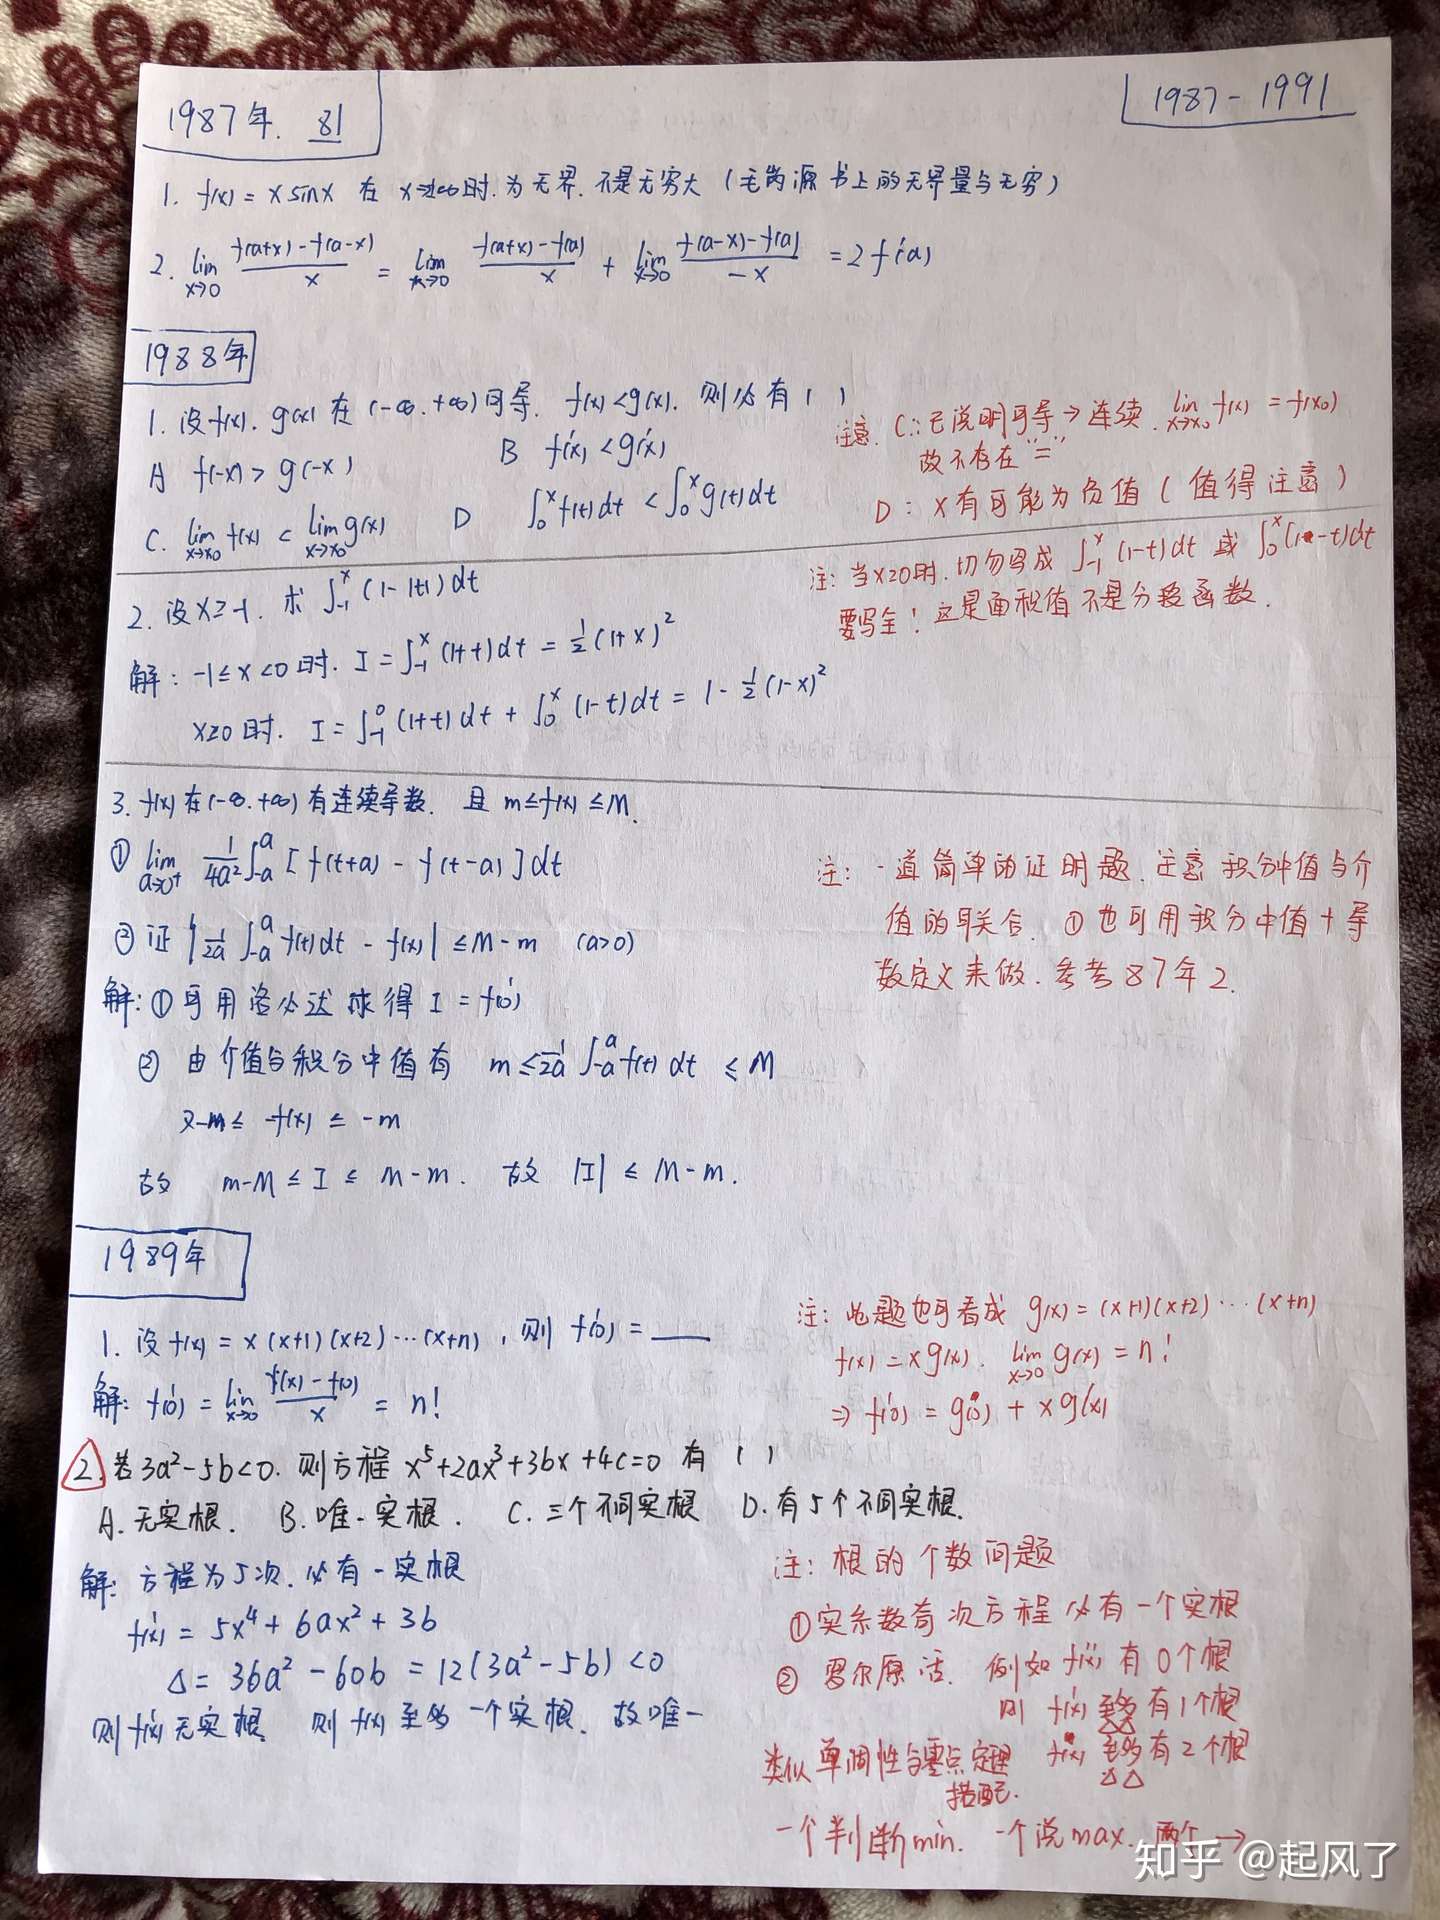 1987年. 81
1987-1991
1. f(x) = x sinx 在 x→∞时.为无界.不是无穷大 (毛的源书上的无界量与无穷)
2. lim x→0 f(a+x)-f(a-x)/x = lim x→0 f(a+x)-f(a)/x + lim x→0 f(a-x)-f(a)/-x = 2f'(a)
1988年
1. 设f(x). g(x) 在 (-∞.+∞)可导. f(x)<g(x). 则必有 ( )
A f(-x) > g(-x) B f'(x) < g'(x)
C. lim x→x₀ f(x) < lim x→x₀ g(x) D ∫₀ˣ f(t)dt < ∫₀ˣ g(t)dt
注意. C: 已说明可导→连续. lim x→x₀ f(x) = f(x₀)
故不存在"="
D: x有可能为负值 (值得注意)
2. 设x≥-1. 求 ∫₋₁ˣ (1-|t|)dt
解: -1≤x<0时. I=∫₋₁ˣ(1+t)dt = ½(1+x)²
x≥0时. I=∫₋₁⁰(1+t)dt + ∫₀ˣ(1-t)dt = 1-½(1-x)²
注: 当x≥0时.切勿写成 ∫₋₁ˣ(1-t)dt 或 ∫₀ˣ(1-t)dt
要写全! 这是面积值不是分段函数.
3. f(x)在(-∞.+∞)有连续导数. 且 m≤f(x)≤M.
① lim a→0⁺ 1/4a² ∫₋ₐᵃ [f(t+a) - f(t-a)]dt
② 证 |1/2a ∫₋ₐᵃ f(t)dt - f(x)| ≤M-m (a>0)
解: ①可用洛必达求得 I=f'(0)
② 由介值与积分中值有 m≤1/2a ∫₋ₐᵃ f(t)dt ≤M
又-M≤ -f(x) ≤ -m
故 m-M ≤ I ≤ M-m. 故 |I| ≤ M-m.
注: 一道简单的证明题.注意积分中值与介
值的联合. ①也可用积分中值+导
数定义来做.参考87年2.
1989年
1. 设f(x) = x(x+1)(x+2)···(x+n), 则 f'(0) = ____
解: f'(0) = lim x→0 f(x)-f(0)/x = n!
注: 此题也可看成 g(x) = (x+1)(x+2)···(x+n)
f(x) = xg(x). lim x→0 g(x) = n!
⇒ f'(0) = g(0) + xg'(x)
2. 若3a²-5b<0. 则方程 x⁵+2ax³+3bx+4c=0 有 ( )
A. 无实根. B. 唯一实根. C. 三个不同实根 D. 有5个不同实根.
解: 方程为5次.必有一实根
f'(x) = 5x⁴+6ax²+3b
Δ = 36a²-60b = 12(3a²-5b) <0
则f'(x)无实根. 则f(x)至多一个实根. 故唯一
注: 根的个数问题
①实系数奇次方程必有一个实根
② 罗尔原话. 例如f''(x)有0个根
则 f'(x)至多有1个根
f(x)至多有2个根
类似单调性与零点定理
搭配.
一个判断min. 一个说max. 两个→
知乎 @起风了